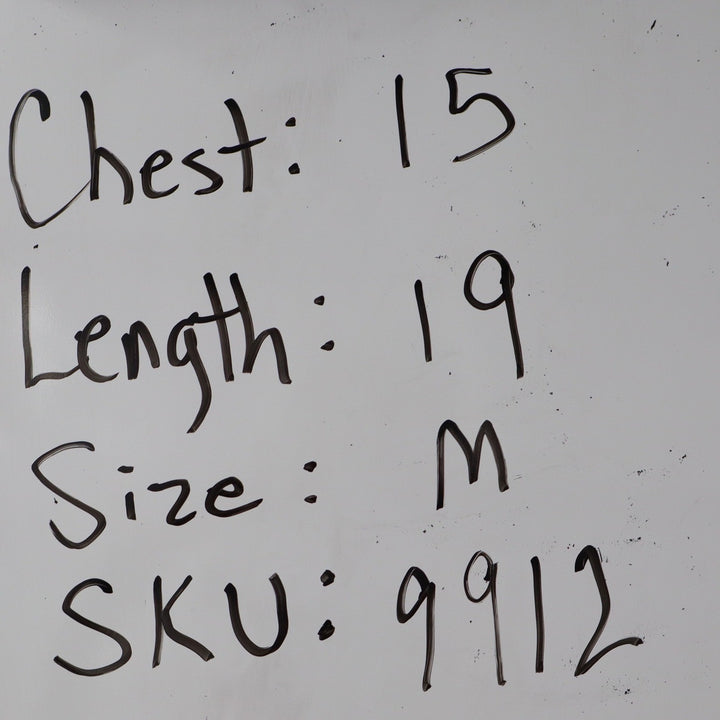 Chest: 15
Length: 19
Size: M
SKU: 9912